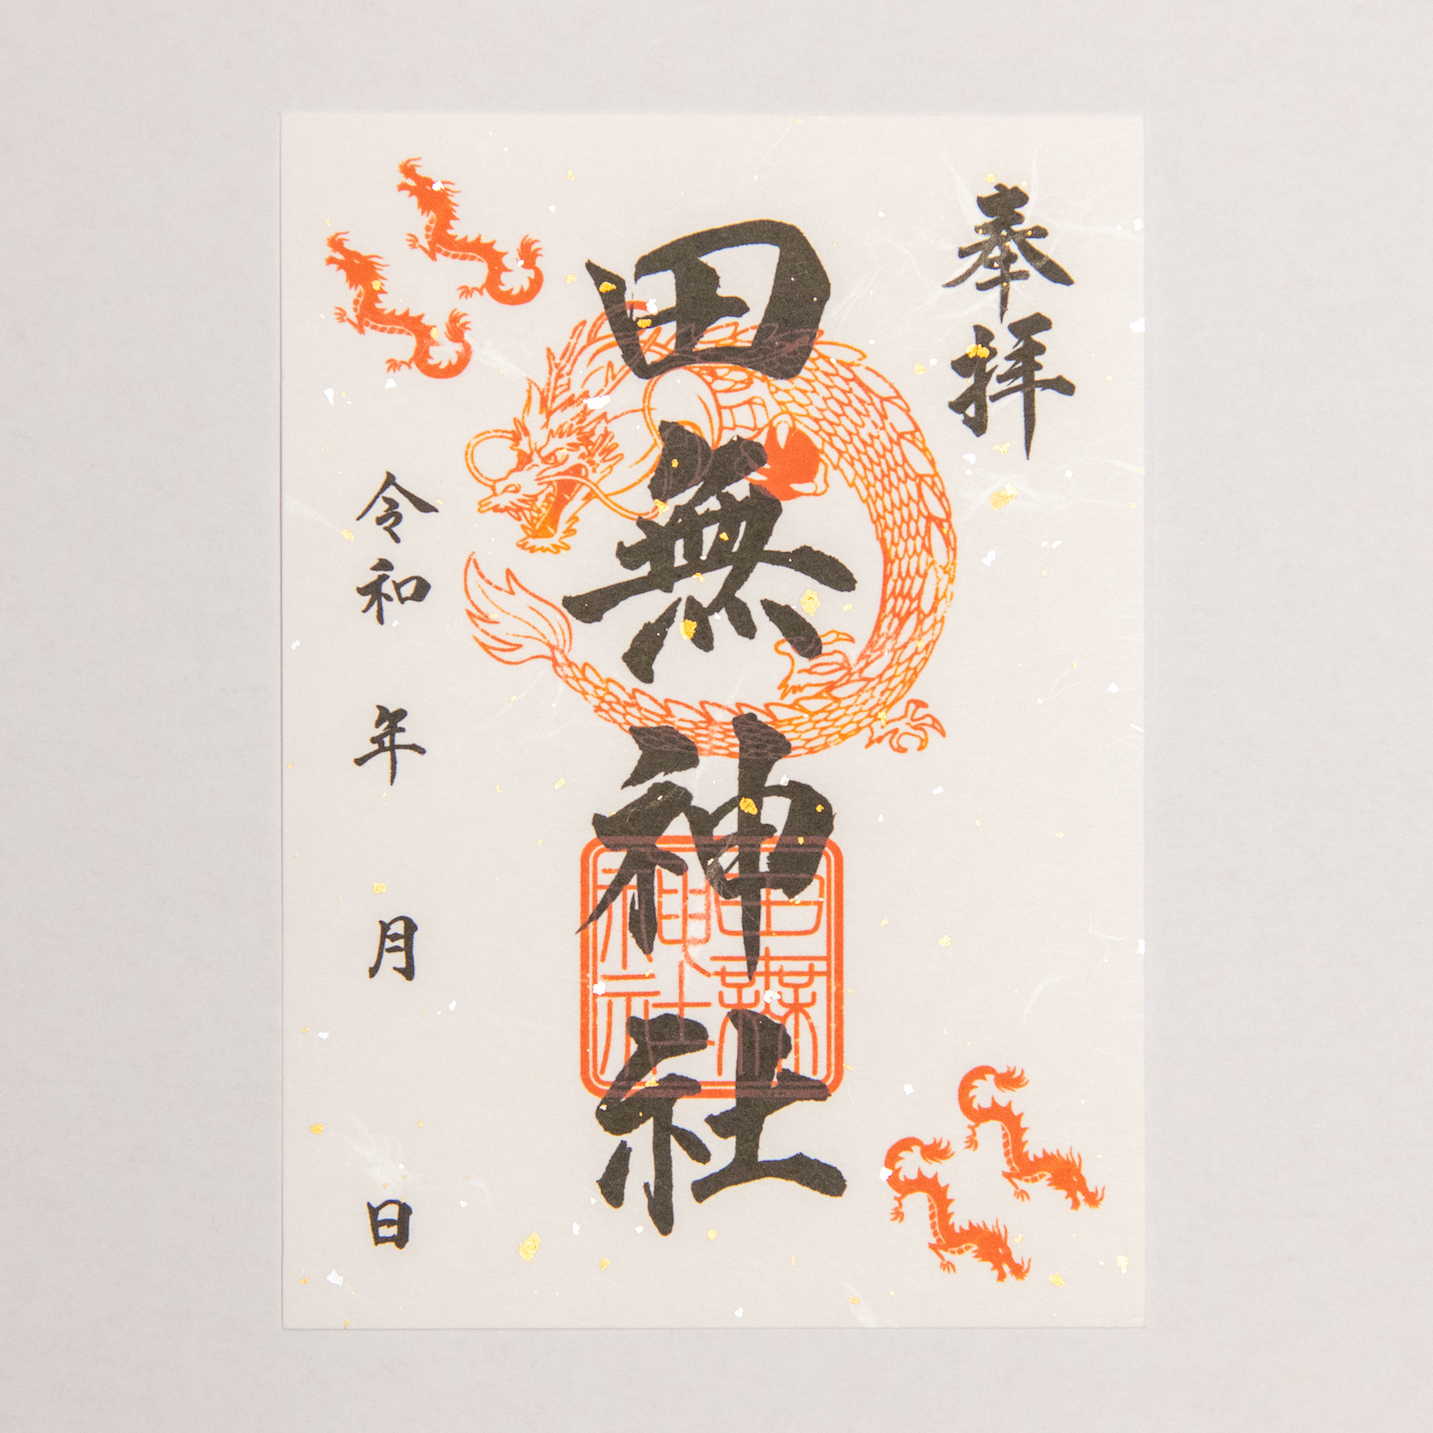 奉拝
田無神社
田無神社
令和 年 月 日